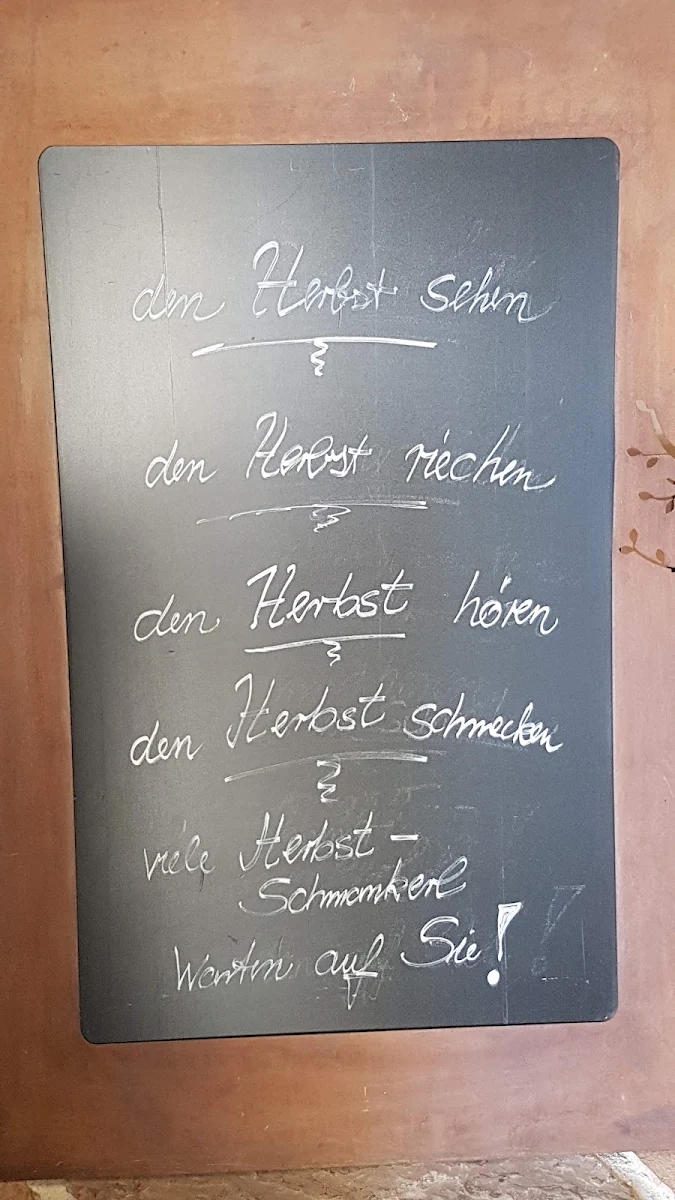 den Herbst sehen
den Herbst riechen
den Herbst hören
den Herbst schmecken
viele Herbst-
Schmankerl
Warten auf Sie!